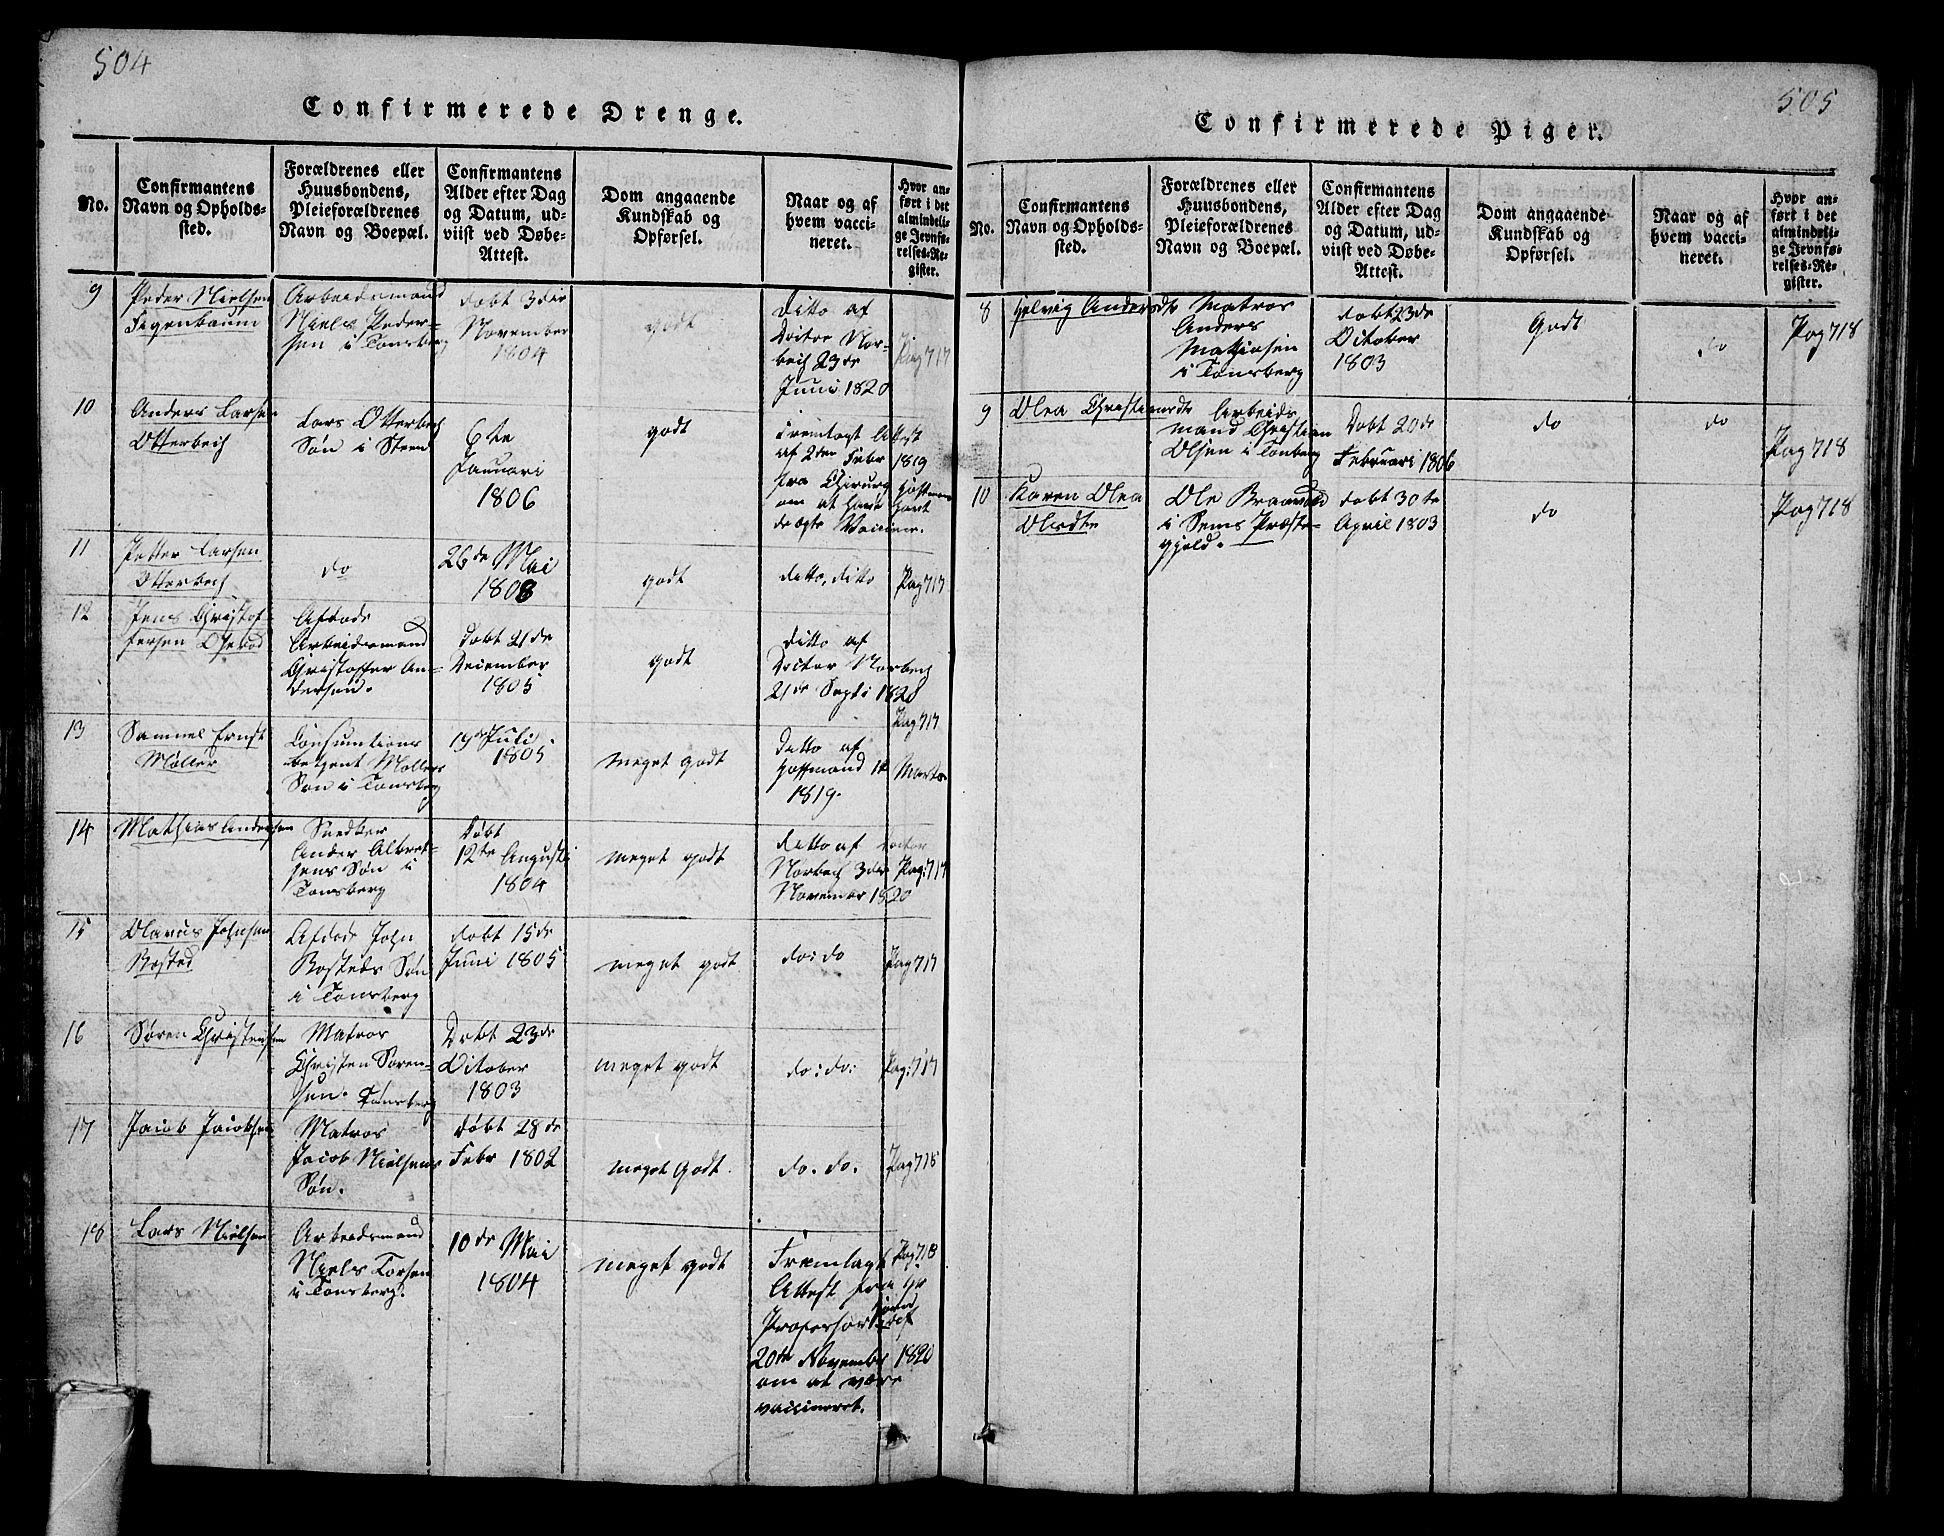 504
Confirmerede Drenge.
No.
Confirmantens
Navn og Opholds-
sted.
Forældrenes eller
Huusbondens,
Pleieforældrenes
Navn og Boepæl.
Confirmantens
Alder efter Dag
og Datum, ud-
viist ved Døbe-
Attest.
Dom angaaende
Kundskab og
Opførsel.
Naar og af
hvem vacci-
neret.
Hvor an-
ført i det
almindeli-
ge Jevnfø-
relses-Re-
gister.
9
Peder Nielsen
Figenbaum
Arbeidsmand
Niels Peder-
sen i Tonsberg
døbt 3die
November
1804
godt
Ditto af
Doctor Nor-
bech 23de
Juni 1820
Pag 717
10
Anders Larsen
Otterbech
Lars Otterbech
Søn i Steen
6te
Januari
1806
godt
Fremlagt Attest
af 2den Febr 1819
fra Chirurg Hoffmann
om at have havt
de ægte Vacciner.
11
Petter Larsen
Otterbech
do
26de Mai
1808
godt
ditto, ditto
Pag 717
12
Jens Christof-
fersen
Afdøde
Arbeidsmand
Christoffer An-
dersen.
døbt 21de
December
1805
godt
Ditto af
Doctor Norbech
21de Septi 1820
Pag 717
13
Samuel Ernst
Møller
Consumtions
betjent Møllers
Søn i Tonsberg
19de Juli
1805
meget godt
Ditto af
Hoffmand 12 Marts
1819.
14
Mathias Andersen
Snedker
Ander Albret-
sens Søn i
Tonsberg
Døbt
12te Augusti
1804
meget godt
Ditto af Doctor
Norbech 3die
Novemer 1820
Pag: 717
15
Olavus Johnsen
Rosted
Afdøde John
Rosteds Søn
i Tonsberg
døbt 15de
Juni 1805
meget godt
do: do
Pag 717
16
Søren Christensen
Matros
Christen Søren-
sen. Tonsberg
Døbt 23de
October
1803
meget godt
do: do:
Pag: 717
17
Jacob Jacobsen
Matros
Jacob Nielsens
Søn.
døbt 28de
Febr 1802
meget Godt.
do. do.
Pag 715
18
Lars Nielsen
Arbeidsmand
Niels Torsen
i Tonsberg.
10de Mai
1804
meget godt
Fremlagt
Attest fra Hr
Professor
20de Novembr 1820
om at være
vaccineret.
Pag 718
505
Confirmerede Piger.
No.
Confirmantens
Navn og Opholds-
sted.
Forældrenes eller
Huusbondens,
Pleieforældrenes
Navn og Boepæl.
Confirmantens
Alder efter Dag
og Datum, ud-
viist ved Døbe-
Attest.
Dom angaaende
Kundskab og
Opførsel.
Naar og af
hvem vacci-
neret.
Hvor an-
ført i det
almindeli-
ge Jevnfø-
relses-Re-
gister.
8
Helvig Andersdtr
Matros
Anders
Mathiasen
i Tonsberg
døbt 23de
October
1803
Godt
do
Pag 718
9
Olea Christiansdtr
Arbeids
mand Christian
Olsen i Tonberg
Døbt 20de
Februari 1806
do
do
Pag 718
10
Karen Olea
Olsdtr
Ole
i Sems Præste-
gjeld.
døbt 30te
April 1803
do
Pag 718